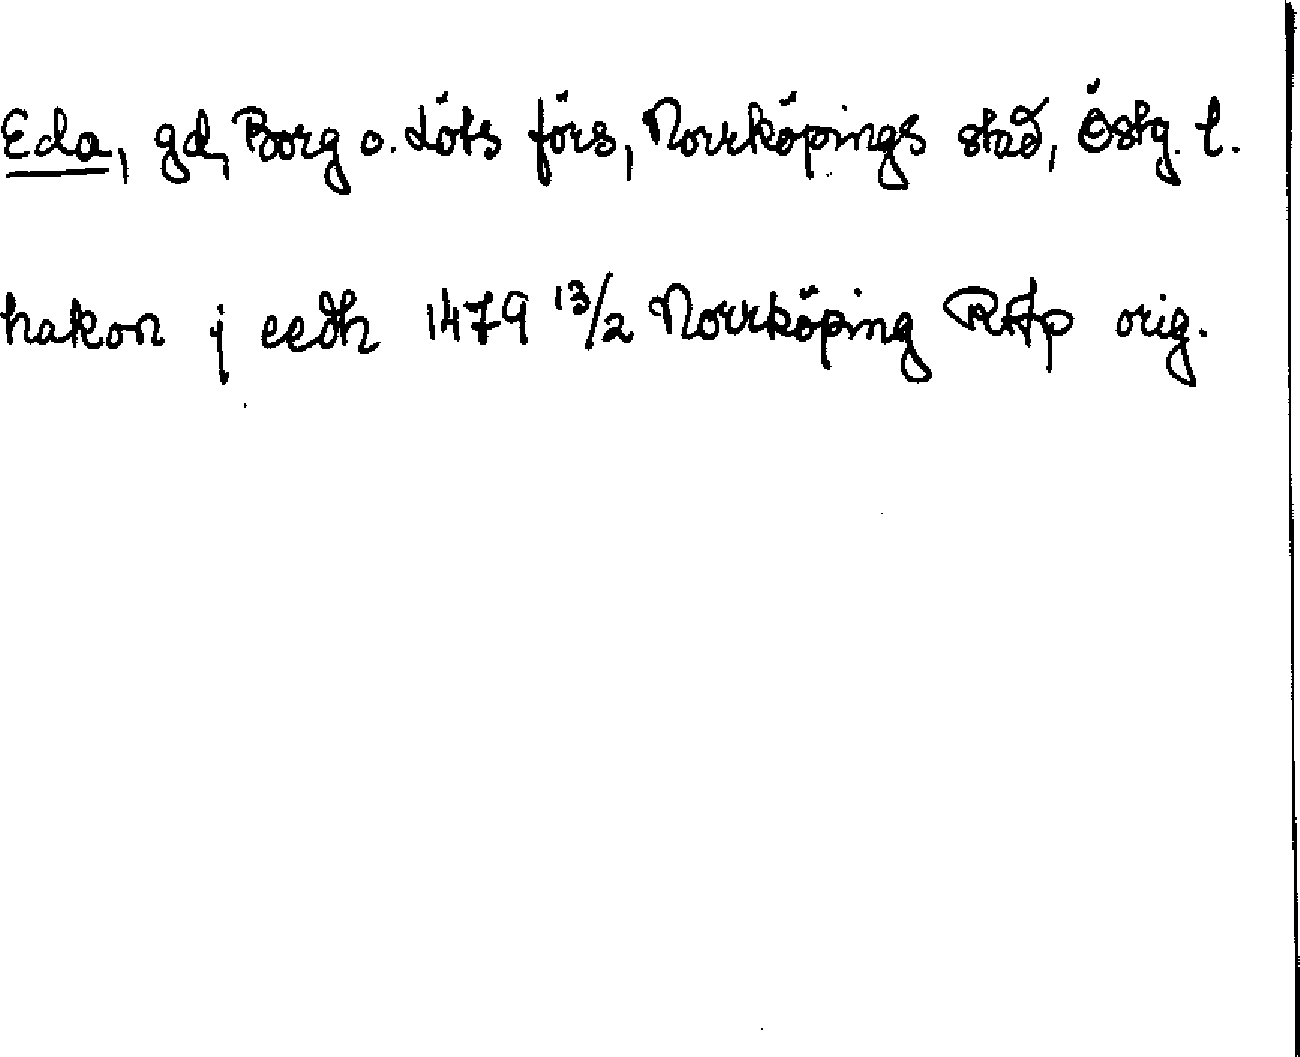 Eda, gd, Borg o. Löts förs, Norrköpings stad, Östg. l.
hakon j eedh 1479 13/2 Norrköping RAp orig.